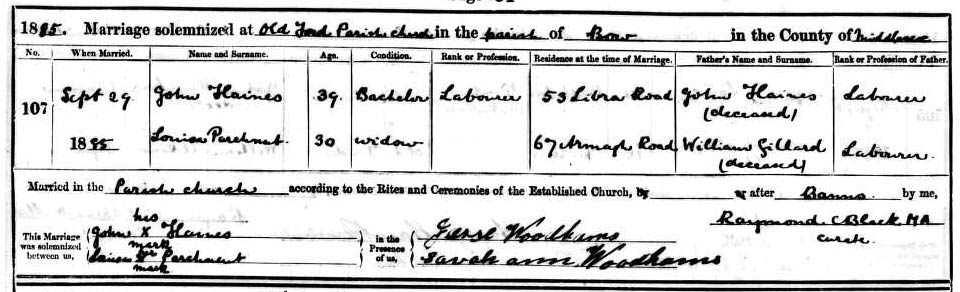 1885. Marriage solemnized at Old Ford Parish church in the parish of Bow in the County of Middlesex
No. When Married. Name and Surname. Age. Condition. Rank or Profession. Residence at the time of Marriage. Father's Name and Surname. Rank or Profession of Father.
107 Sept 29 John Haines 39 Bachelor Labourer 53 Libra Road John Haines (deceased) Labourer
1885 Louisa Parchment 30 widow 67 Armagh Road William Gillard (deceased) Labourer.
Married in the Parish church according to the Rites and Ceremonies of the Established Church, by or after Banns by me,
This Marriage was solemnized between us,
his
John X Haines
mark
Louisa Parchment
mark
in the Presence of us,
George Woodhams
Sarah ann Woodhams
Raymond C Black MA
curate.